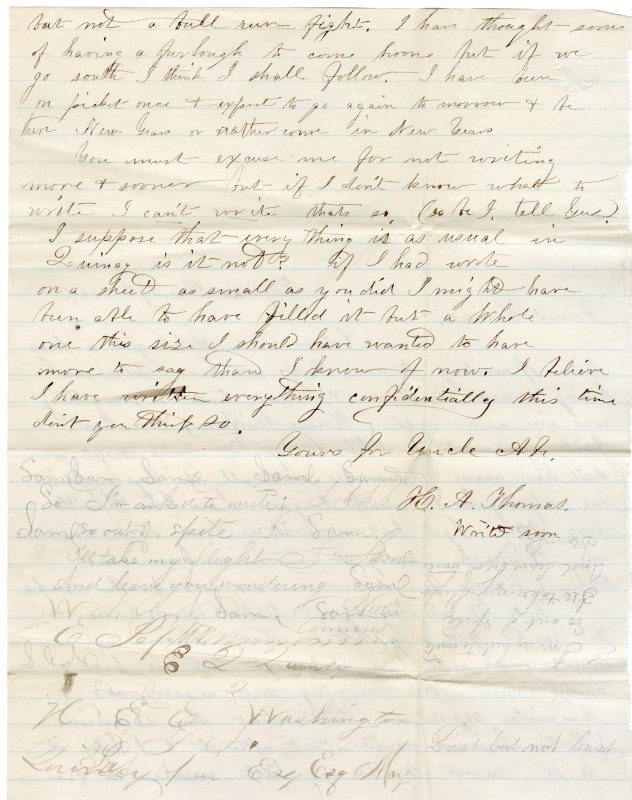 but not a bull run fight. I have thought some
of having a furlough to come home but if we
go south I think I shall follow. I have been
on picket once & expect to go again to morrow & be
there New Years or rather come in New Years
You must excuse me for not writing
more & sooner but if I don't know what to
write I can't write thats so, (so be I, tell Gus.)
I suppose that every thing is as usual in
Quincy is it not? If I had wrote
on a sheet as small as you did I might have
been able to have filled it but a whole
one this size I should have wanted to have
more to say than I know of now. I believe
I have written everything confidentially this time
don't you think so.
Yours for Uncle Ab.
H. A. Thomas.
Write soon
Sam Sam Sam Sam
So I'm asked to write;
so out of spite I'm
I'll take my flight
And leave you wondering
Sam
E
E Q Quincy
2
H E E Washington
Last but not least
Quincy Esq Esq